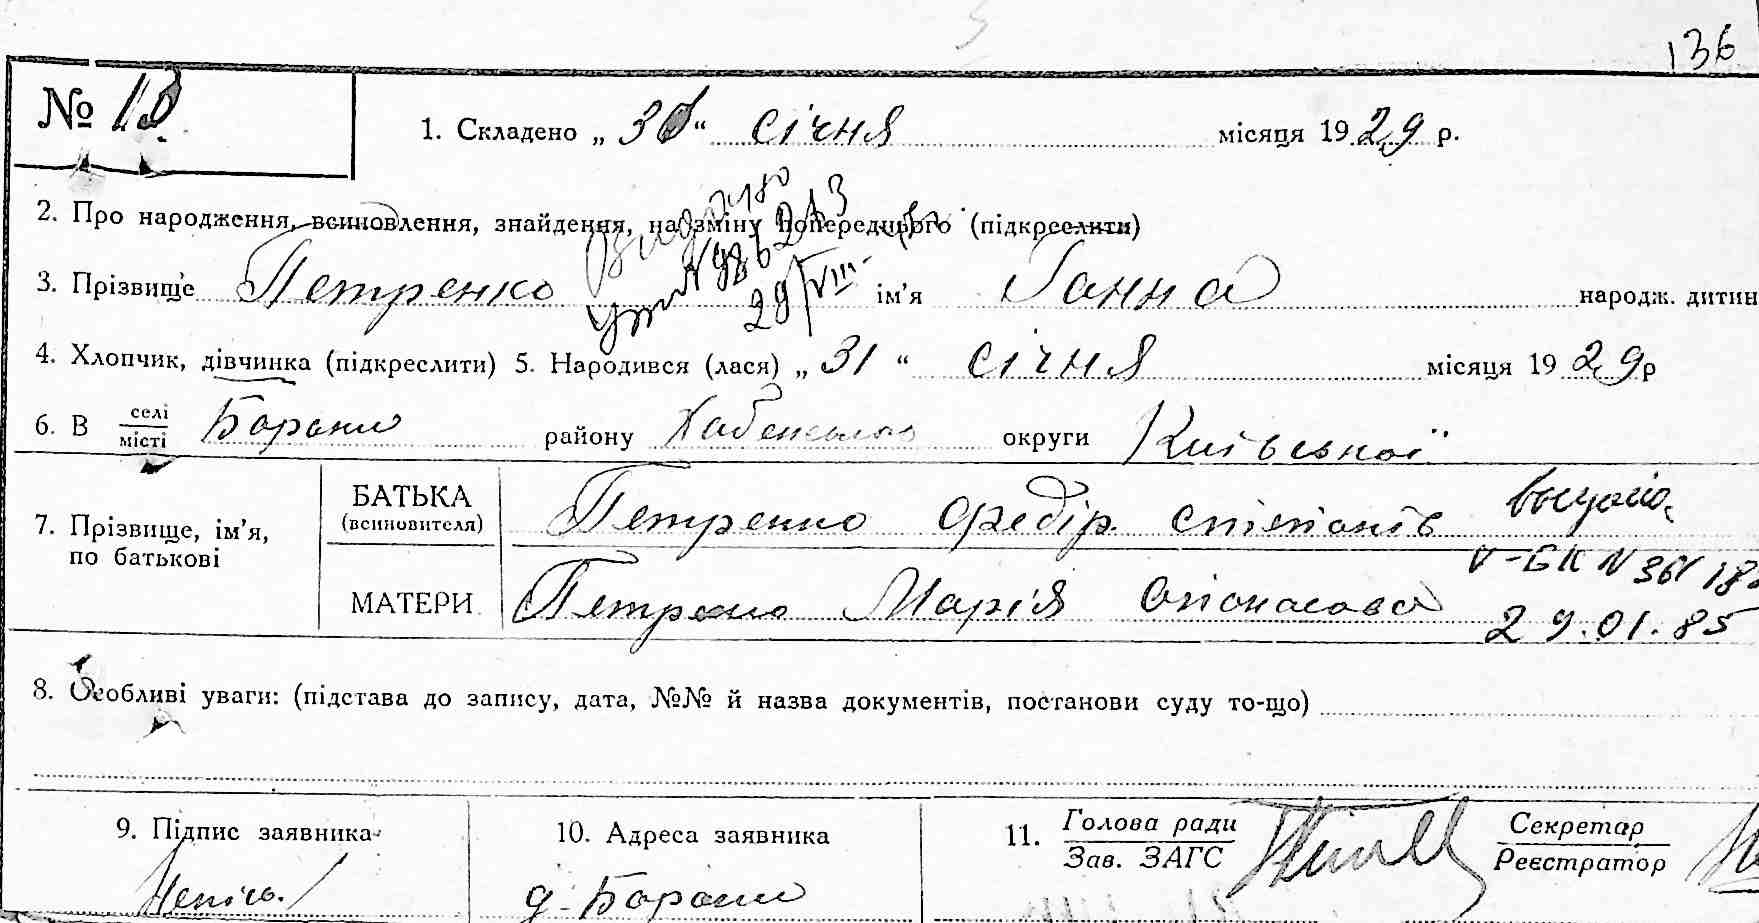 136
№ 10
1. Складено „ 31 “ січня місяця 1929 р.
2. Про народження, всиновлення, знайдення, на зміну попереднього (підкреслити)
3. Прізвище Петренко ім’я Ганна народж. дитин
29/VIII
4. Хлопчик, дівчинка (підкреслити) 5. Народився (лася) „ 31 “ січня місяця 1929 р
6. В селі/місті Борани району Хабенського округи Київської
7. Прізвище, ім’я, по батькові
БАТЬКА (всиновителя) Петренко Федір Степанів
V-БК N 361 18
МАТЕРИ Петренко Марія Опанасова
29.01.85
8. Особливі уваги: (підстава до запису, дата, №№ й назва документів, постанови суду то-що)
9. Підпис заявника 10. Адреса заявника 11. Голова ради/Зав. ЗАГС Секретар/Реєстратор
Непись. д. Борани